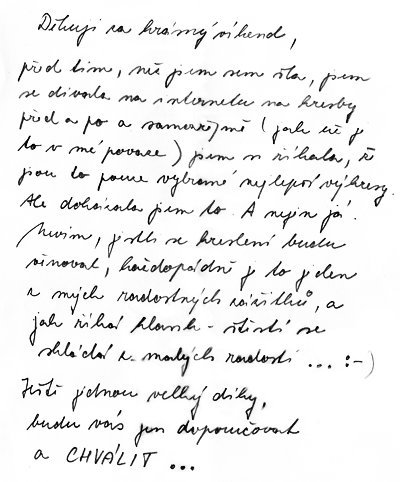 Děkuji za krásný víkend,
před tím, než jsem sem šla, jsem
se dívala na internetu na kresby
před a po a samozřejmě (jak už je
to v mé povaze) jsem si říkala, že
jsou to pouze vybrané nejlepší výkresy.
Ale dokázala jsem to. A nejen já.
Nevím, jestli se kreslení budu
věnovat, každopádně je to jeden
z mých radostných zážitků, a
jak říká klasik - štěstí se
skládá z malých radostí ... :-)
Ještě jednou velký díky,
budu vás jen doporučovat
a CHVÁLIT ...